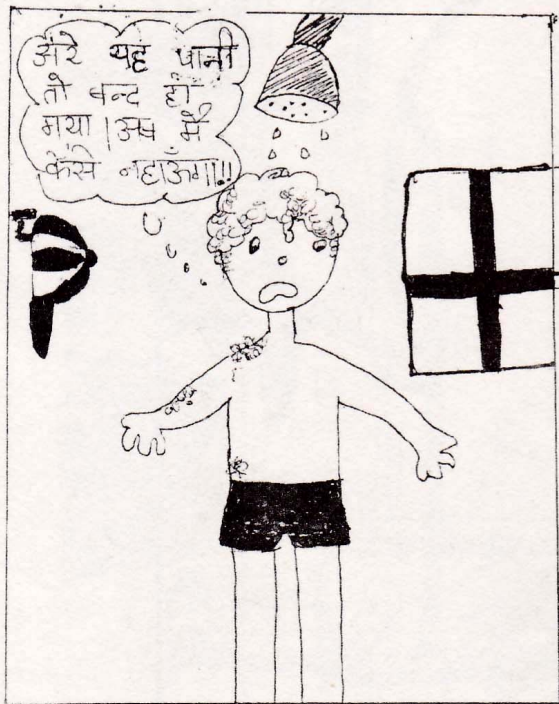 अरे यह पानी
तो बन्द हो
गया। अब मैं
कैसे नहाऊँगा!!